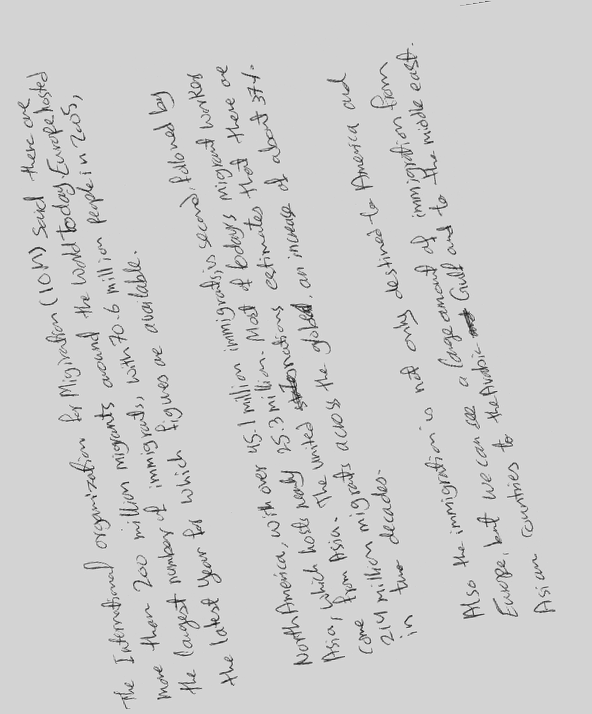 The International organization for Migiration (IOM) said there are
more than 200 million migrants around the world today. Europe hosted
the largest number of immigrants, with 70.6 million people in 2005,
the latest year for which figures are available.
North America, with over 45.1 million immigrants, is second, followed by
Asia, which hosts nearly 25.3 million. Most of today's migrant workers
come from Asia. The united nations estimates that there are
214 million migrants across the globe, an increase of about 37%
in two decades.
Also the immigration is not only destined to America and
Europe, but we can see a large amount of immigration from
Asian countries to the Arabic Gulf and to the middle east.